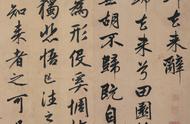 歸去來辭
歸去來兮田園
蕪胡不歸既自
為形役奚惆悵
獨悲悟已往之
知來者之可